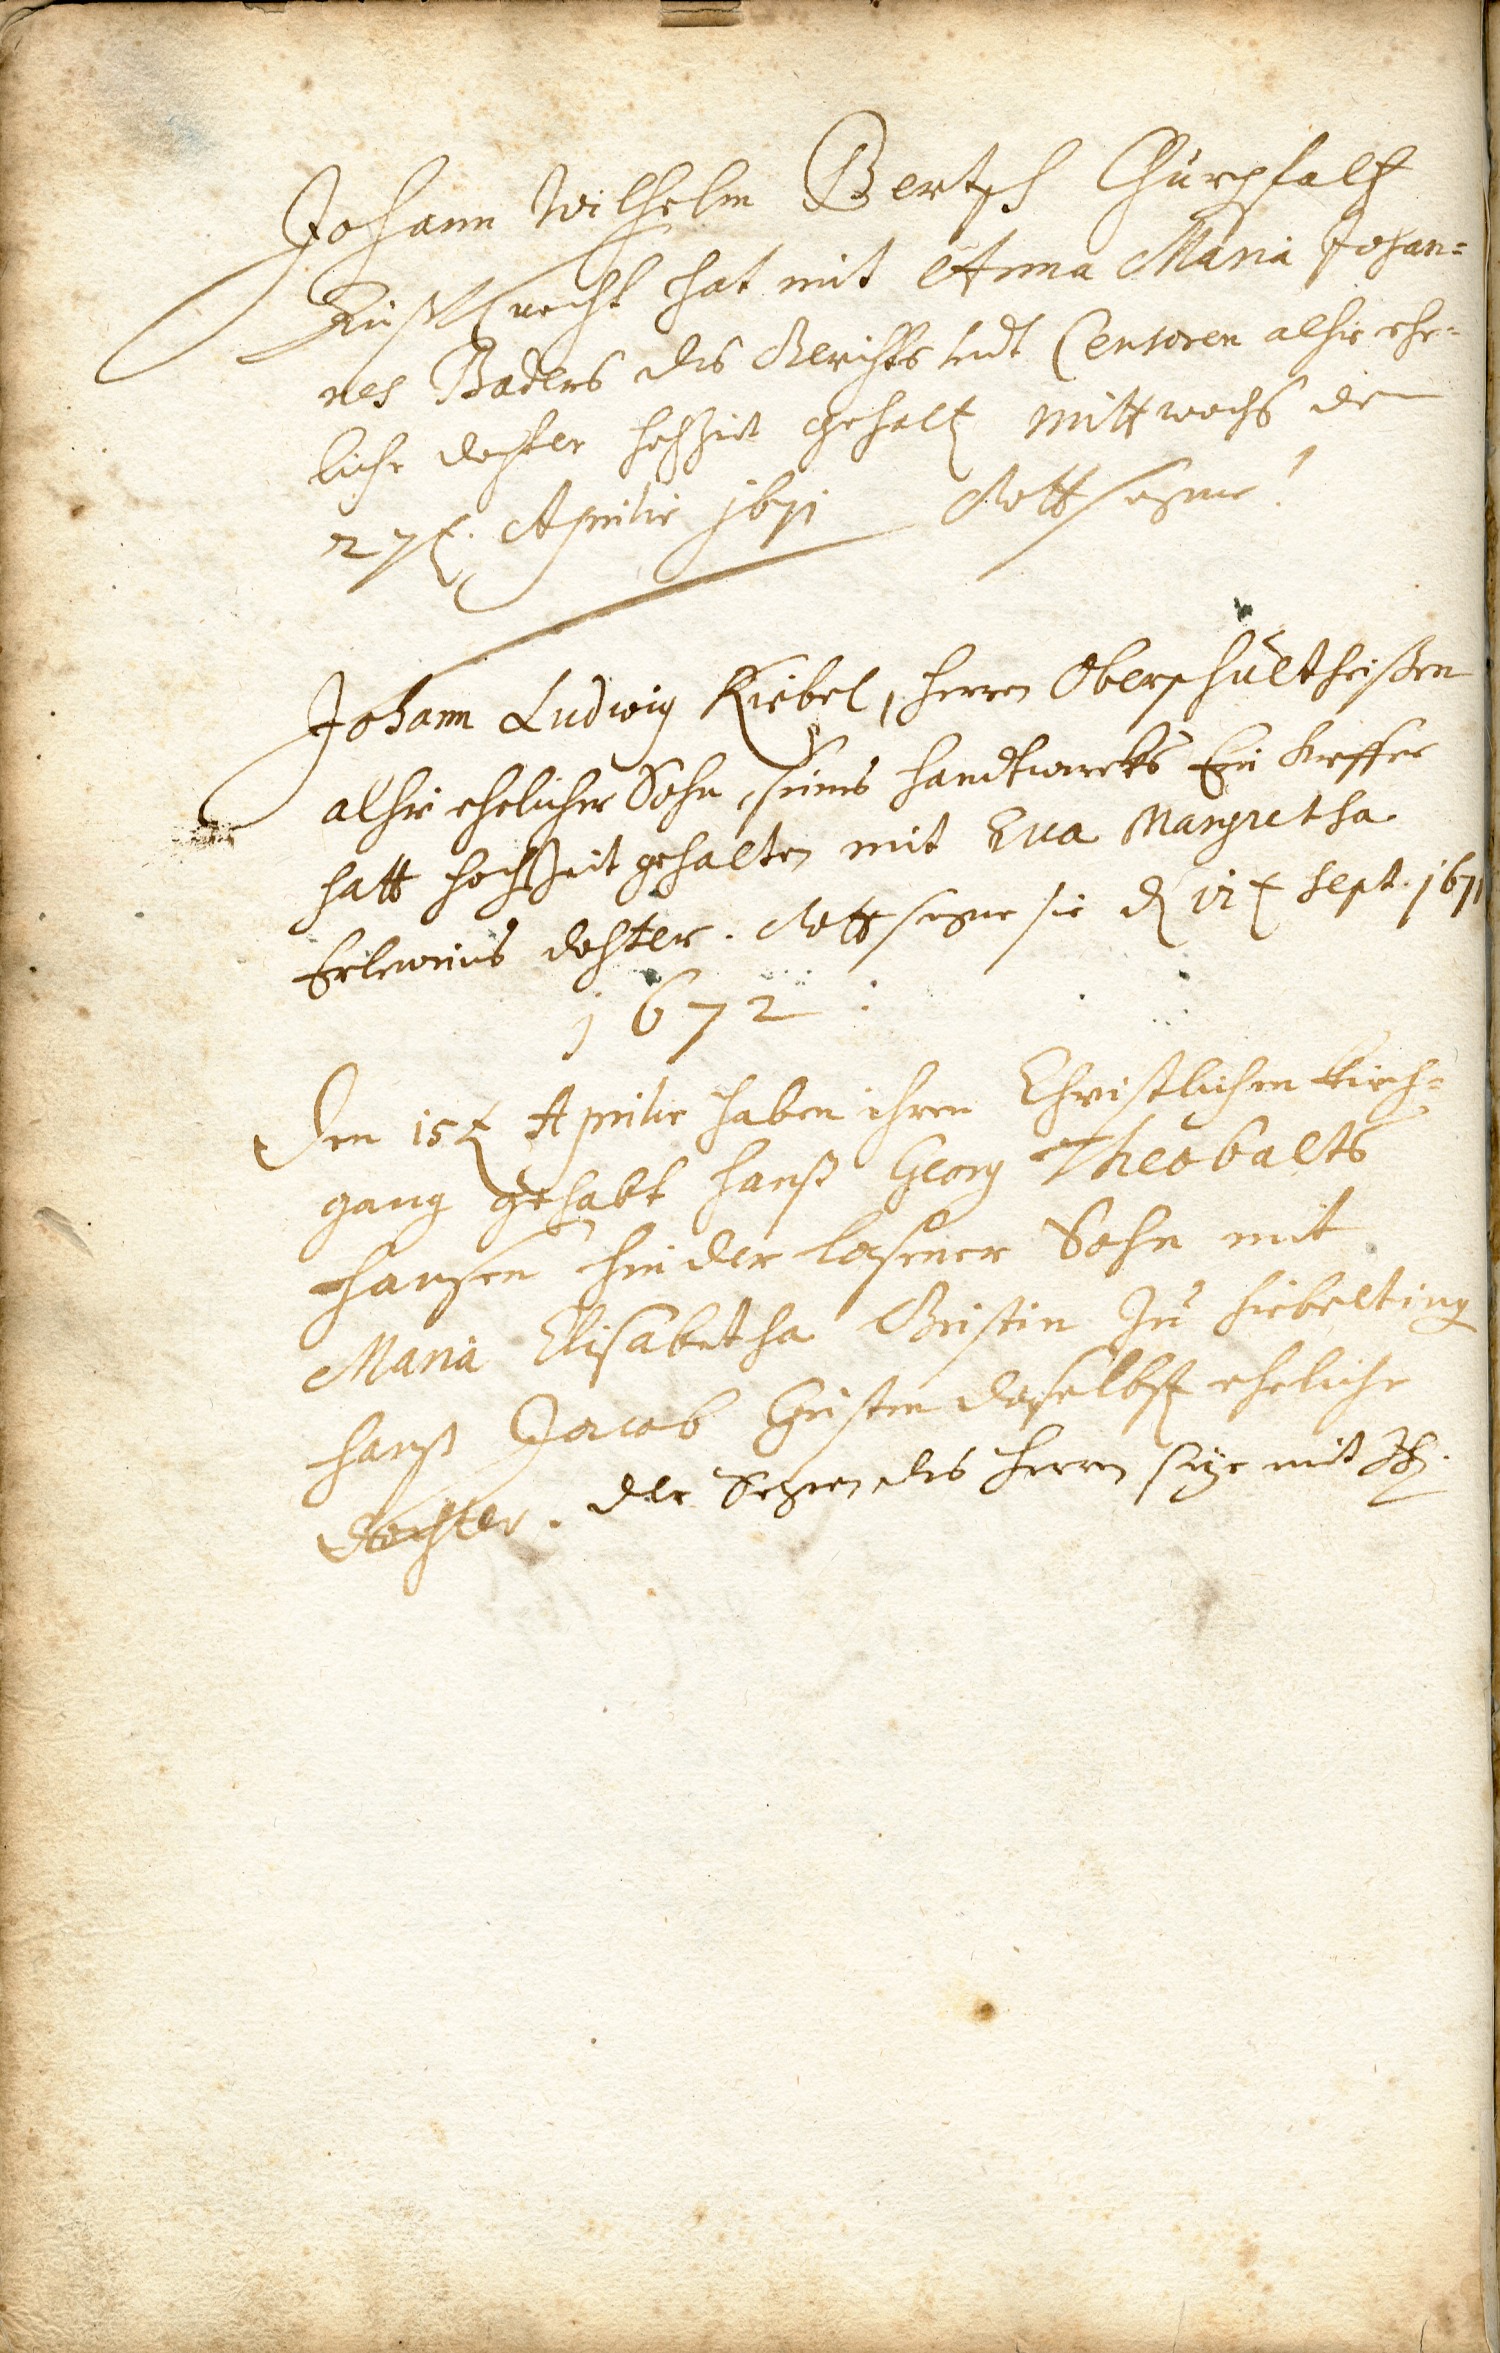 Johann Wilhelm Bertsch Churpfaltz
hat mit Anna Maria Johan=
nes Baders des Gerichts undt Censoren alhie ehe=
liche dochter hochzeit gehalten Mittwochs den
27t. Aprilis 1671 Gott segne!
Johann Ludwig Kiebel, herren Oberschultheißen
alhie ehelicher Sohn, seines handtwercks Ein kieffer
hatt hochzeit gehalten mit Eva Margretha
Erleweins dochter. Gott segne sie d Sept. 1671
1672:
Den 15t Aprilis haben ihren Christlichen kirch=
gang gehabt hanß Georg Theobalts
hansen hinderlasener Sohn mit
Maria Elisabetha Gristin zu
hanß Jacob Gristen daselbst eheliche
dochter. der Segen des herren seye mit Ih.